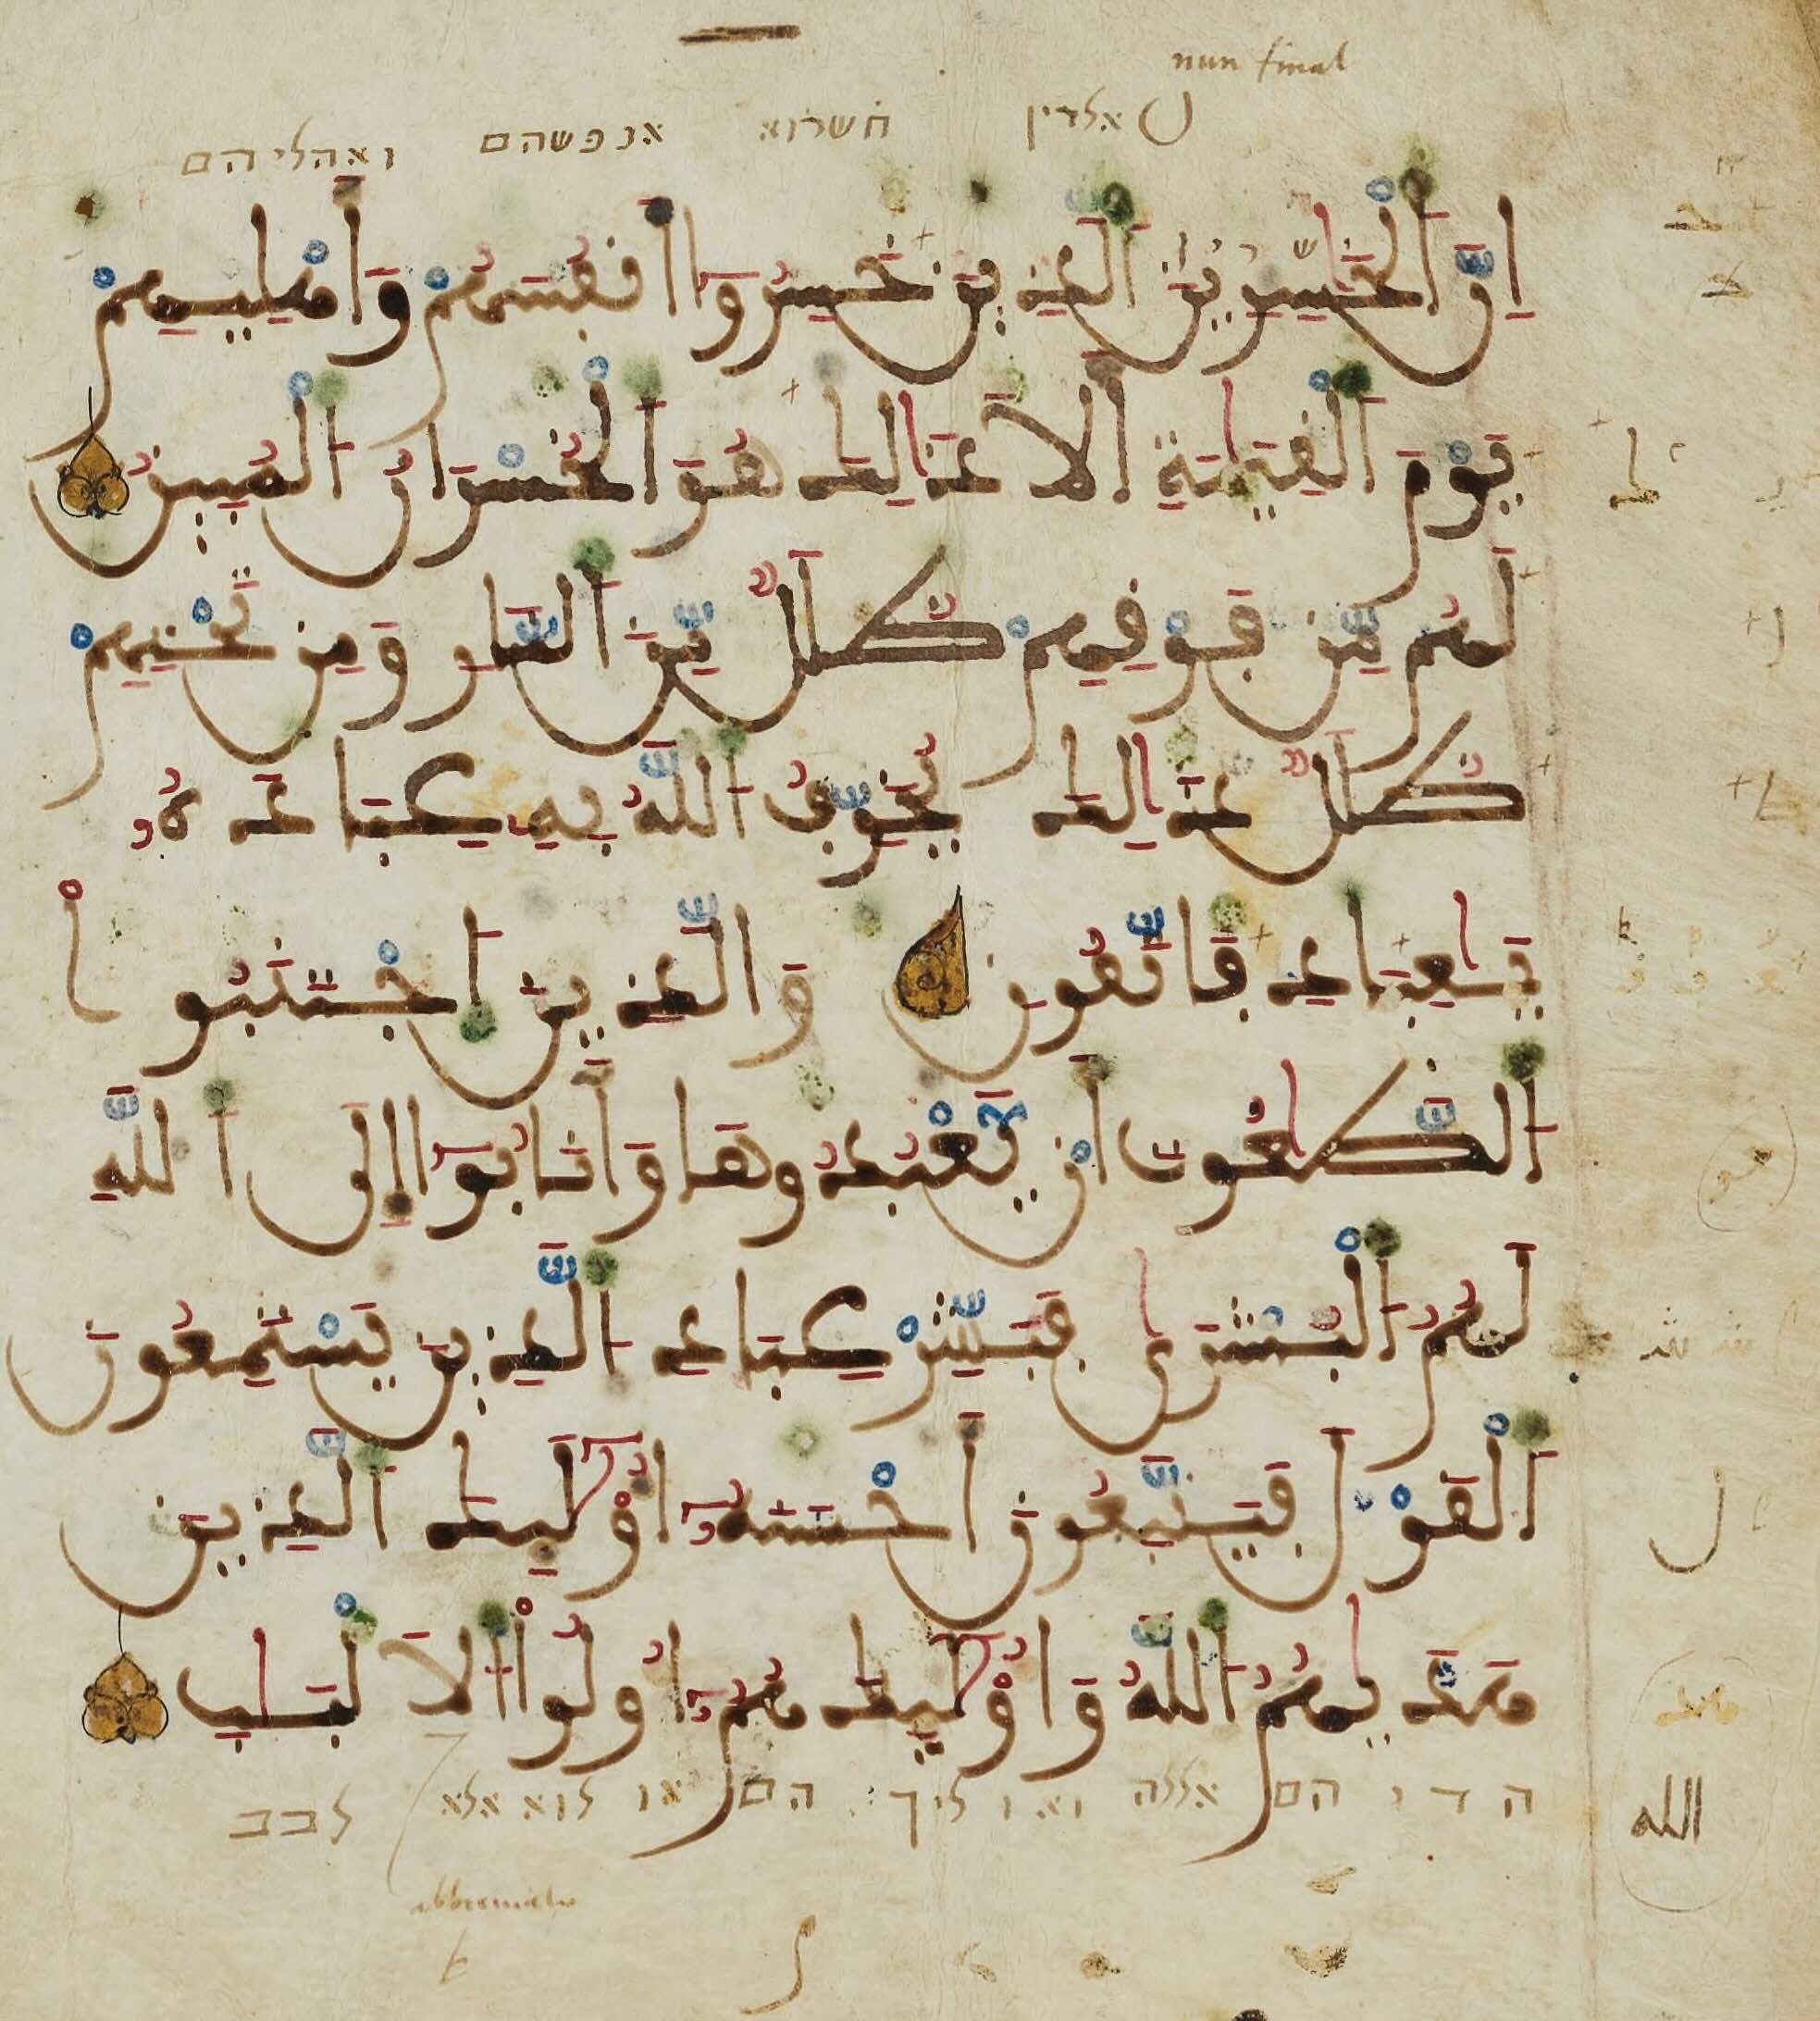 nun final
אלדין חשרוא אנפשהם ואהליהם
اِنَّ اَ۬لْخَٰسِرِينَ اَ۬لذِينَ خَسِرُوٓاْ أَنفُسَهُمْ وَأَهْلِيهِمْ
يَوْمَ اَ۬لْقِيَٰمَةِ أَلَا ذَٰلِكَ هُوَ اَ۬لْخُسْرَانُ اُ۬لْمُبِينُ
لَهُم مِّن فَوْقِهِمْ ظُلَلٌ مِّنَ اَ۬لنَّارِ وَمِن تَحْتِهِمْ
ظُلَلٌ ذَٰلِكَ يُخَوِّفُ اُ۬للَّهُ بِهِۦ عِبَادَهُۥ
يَٰعِبَادِ فَاتَّقُونِ وَالَّذِينَ اَ۪جْتَنَبُواْ
اُ۬لطَّٰغُوتَ أَنْ يَّعْبُدُوهَا وَأَنَابُوٓاْ إِلَى اَ۬للَّهِ
لَهُمُ اُ۬لْبُشْرَىٰ فَبَشِّرْ عِبَادِ اِ۬لَّذِينَ يَسْتَمِعُونَ
اَ۬لْقَوْلَ فَيَتَّبِعُونَ أَحْسَنَهُۥٓ أُوْلَٰٓئِكَ اَ۬لَّذِينَ
هَدَىٰهُمُ اُ۬للَّهُ وَأُوْلَٰٓئِكَ هُمُۥٓ أُوْلُواْ اُ۬لَالْبَٰبِ
ה ד י הם אללה ואוליך הם או לוא אלא לבב
الله